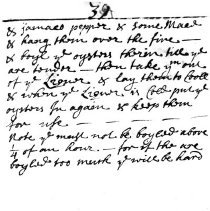 39
& jamaco pepper & some Mace
& hang them over the fire —
& boyl ye oysters therin till ye
are tender — then take ym out
of ye Liquer & lay them to Coole
& when ye Liquer is Cold put ye
oysters In again & keep them
for use —
Note ye must not be boyled above
1/4 of an hour — for if the are
boyled too much ye will be hard